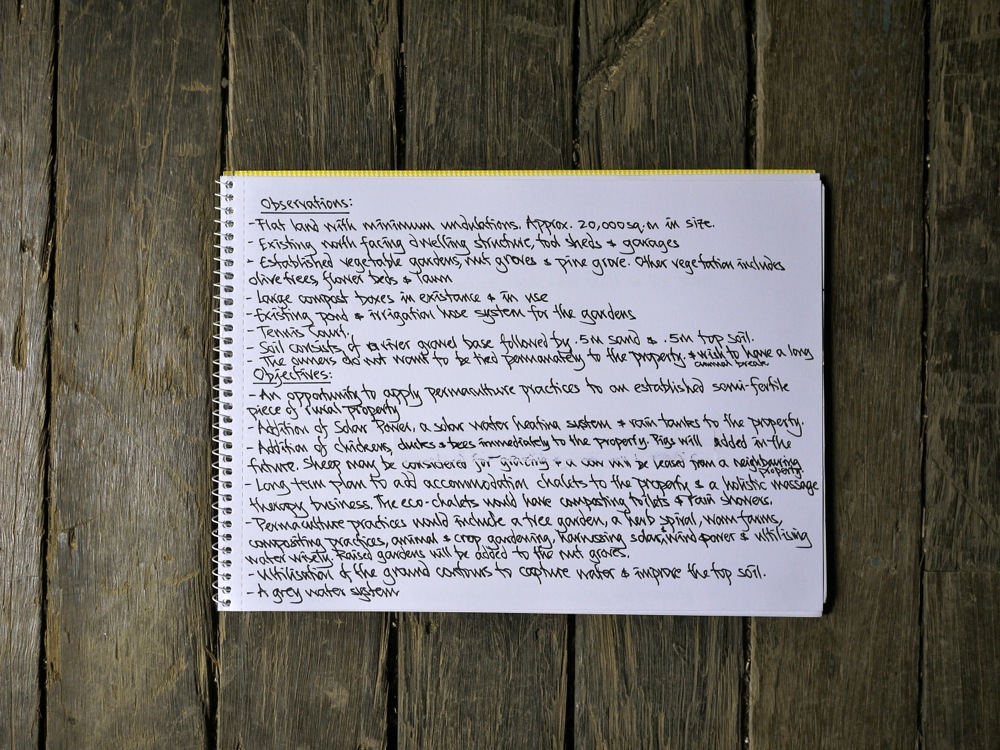 Observations:
- Flat land with minimum undulations. Approx. 20,000 sq.m in size.
- Existing north facing dwelling structure, tool sheds & garages
- Established vegetable gardens, nut groves & pine grove. Other vegetation includes
olive trees, flower beds & lawn
- Large compost boxes in existance & in use
- Existing pond & irrigation hose system for the gardens
- Tennis Court.
- Soil consists of river gravel base followed by .5m sand & .5m top soil.
- The owners do not want to be tied permanately to the property & wish to have a long
annual break
Objectives:
- An opportunity to apply permaculture practices to an established semi-fertile
piece of rural property
- Addition of Solar Power, a solar water heating system & rain tanks to the property.
- Addition of chickens, ducks & bees immediately to the property. Pigs will added in the
future. Sheep may be considered for grazing & a cow will be leased from a neighbouring
property.
- Long term plan to add accommodation chalets to the property & a holistic massage
therapy business. The eco-chalets would have composting toilets & rain showers.
- Permaculture practices would include a tree garden, a herb spiral, worm farms,
composting practices, animal & crop gardening, harnessing solar, wind power & utilising
water wisely. Raised gardens will be added to the nut groves.
- Utilisation of the ground contours to capture water & improve the top soil.
- A grey water system